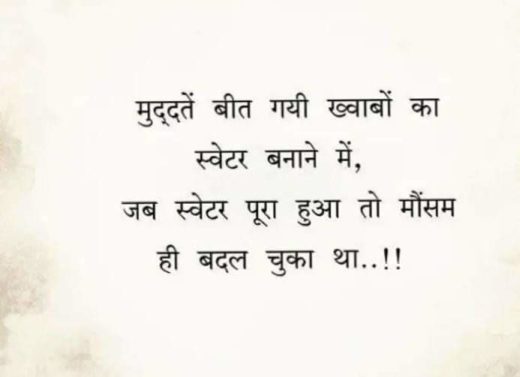 मुद्दतें बीत गयी ख्वाबों का
स्वेटर बनाने में,
जब स्वेटर पूरा हुआ तो मौंसम
ही बदल चुका था..!!